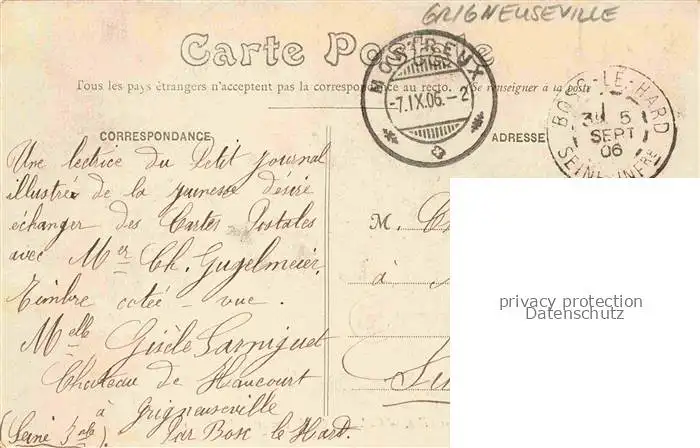 GRIGNEUSEVILLE
Carte Postale
Tous les pays étrangers n'acceptent pas la correspondance au recto. (Se renseigner à la poste)
MOSTREUX
-7.IX.06.-2
BOSC-LE-HARD
5
SEPT
06
SEINE-INFRE
CORRESPONDANCE
ADRESSE
Une lectrice du Petit journal
illustré de la jeunesse désire
échanger des Cartes Postales
avec Mer Ch. Gugelmeier.
Timbre coté - vue.
Melle Gisèle Larniguet
Chateau de Haucourt
à Grigneuseville
(Seine Infre) par Bosc-le-Hard.
M.
à
privacy protection
Datenschutz